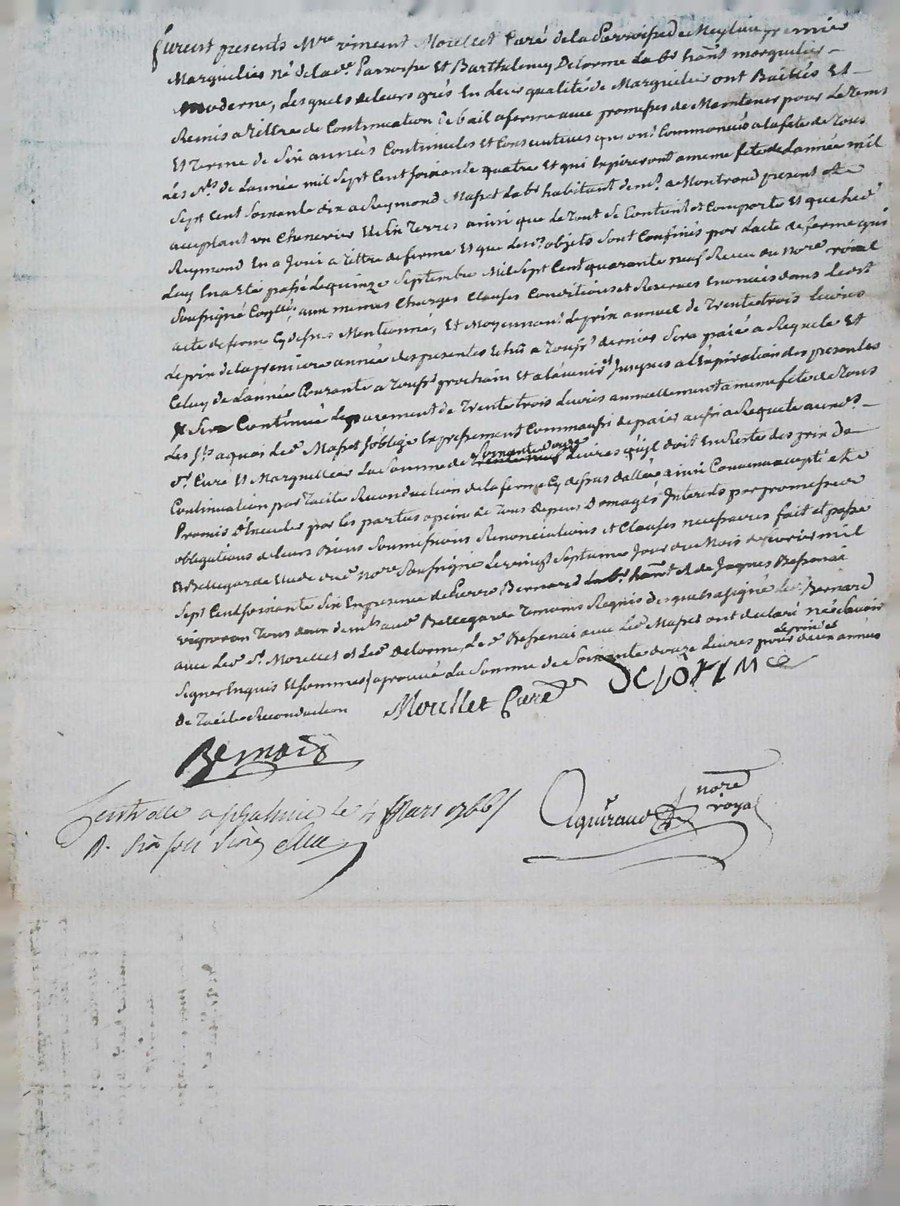 furent presents Mre vincent Morellet Curé de la Parroisse de Meylieu premier
Marguelier né de lad.e Parroisse Et Barthelemy Delorme Labr han.t marguilier
moderne, Lesquels de leurs gres En leur qualité de Marguiliers ont Baillés Et
Remis a tittre de Continuation de bail a ferme avec promesses de Maintenir pour Le tems
Et terme de Six années Continuelles et Consecutives qui ont Commencées a la fete de Tous
Les S.ts de Lannée mil Sept Cent Soixante quatre Et qui Expireront a meme fete de Lannée mil
Sept Cent Soixante dix a Reymond Masset Labr habitant de a Montrond present et
acceptant un Chenevier Et En Terres ainsi que le Tout Se Contient et Comporte Et que led.
Reymond En a Joui a tittre de ferme Et que lesd. objets Sont Confinés par Lacte de ferme qui
Luy En a Eté passé Le quinze Septembre Mil Sept Cent quarante neuf Recu du No.re roial
Soussigné aux memes Charges Clauses Conditions et Reserves Enoncés dans Led.
acte de ferme Cy dessus Mentionné, Et Moyennant Le prix annuel de Trente trois Livres
Le prix de la premiere année des presentes Echu a Touss.ts dernier Sera paié a Requete Et
Celuy de Lannée Courante a Touss.ts prochain Et a Lavenir Jusques a LExpiration des presentes
Sera Continué Le payement de Trente trois Livres annuellement a meme fete de Tous
Les S.ts a quoi Led. Masset Soblige Expressement Comm aussi de paier aussi a Requete aux d.
S.r Curé Et Marguillier La Somme de Soixante douze Livres quil doit En Reste des prix De
Continuation par Tacite Reconduction de la ferme Cy dessus dattée ainsi Convenu accepté et
Promis par les parties a peine de Tous depens Domages Interets par promesses
obligations de leurs Biens Soumissions Renonciations et Clauses necessaires fait et passé
a Bellegarde Etude du No.re Soussigné Le vingt Septieme Jour du Mois de fevrier mil
Sept Cent Soixante Six En presence de Pierre Bernard Labr han.t et de Jaques Bessenai
vigneron Tous deux aud. Bellegarde Temoins Requis desquels a Signé Le d. Bernard
avec Led. S.r Morellet et Led. Delorme, Led. Bessenai avec Led. Masset ont declaré ne Scavoir
Signer Enquis Et Sommés / aprouvé La Somme de Soixante douze Livres pour Le prix de deux années
De Tacite Reconduction
Morellet Curé
DeLORME
Bernard
Controllé a le 4 Mars 1766
Aguiraud no.re royal